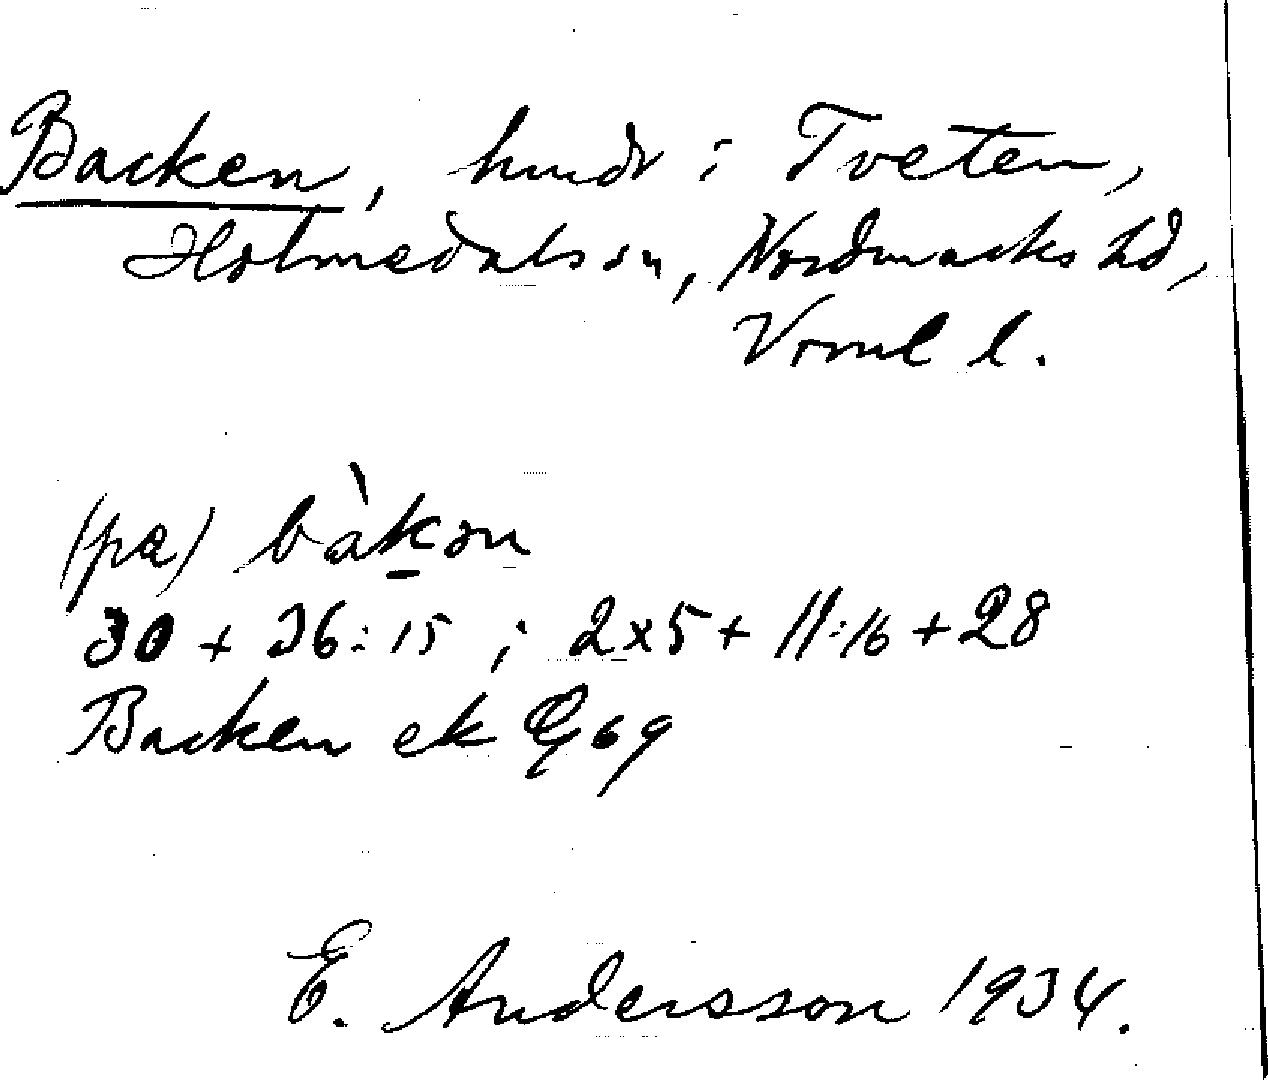 Backen, hmdr i Tveten,
Holmedals sn, Nordmarks hd,
Vrml l.
(pa) bàkən
30 + 36:15 ; 2x5 + 11:16 + 28
Backen ek 69
E. Andersson 1934.